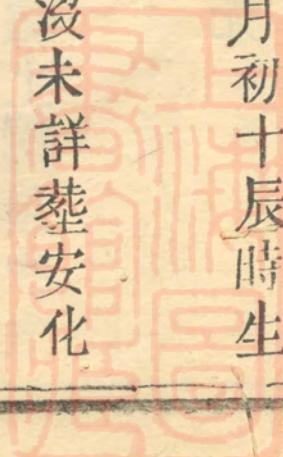 月初十辰時生
沒未詳塟安化